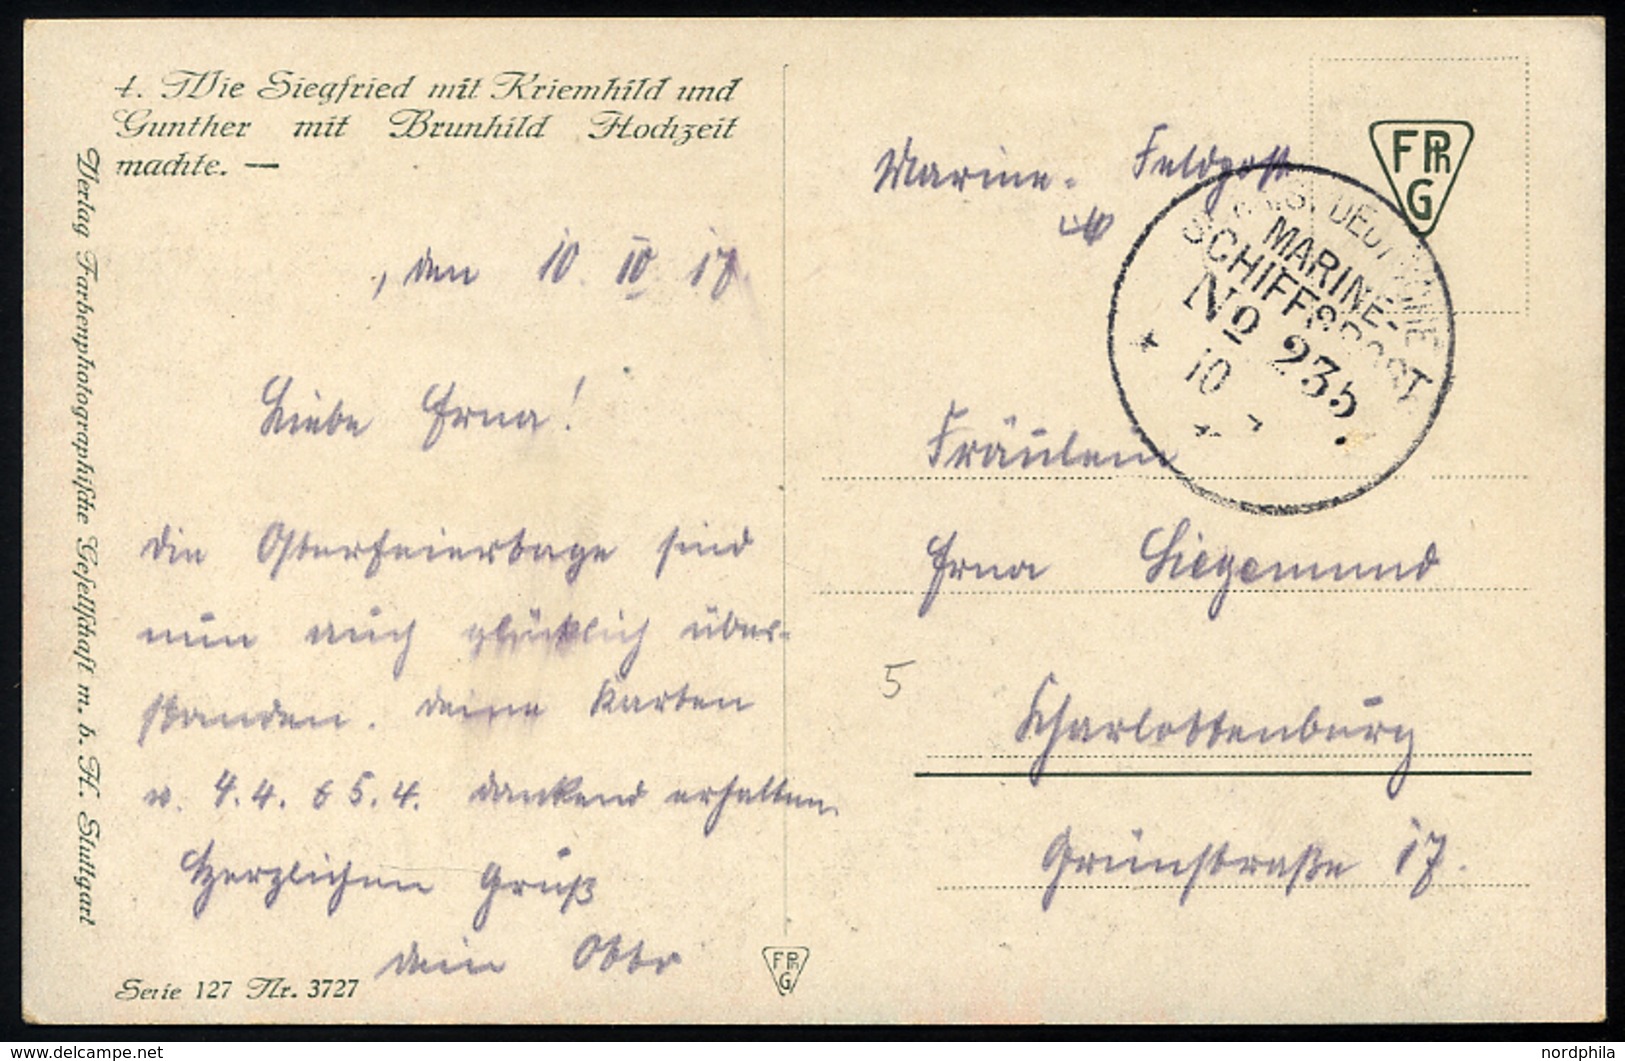 4. Wie Siegfried mit Kriemhild und
Gunther mit Brunhild Hochzeit
machte. —
Verlag Farbenphotographische Gesellschaft m. b. H. Stuttgart
, den 10. IV 17.
Liebe Erna!
die Osterfeiertage sind
nun auch glücklich über-
standen. Deine Karten
v. 4.4. & 5.4. dankend erhalten.
Herzlichen Gruß
dein Otto
Serie 127 Nr. 3727
FPhG
Marine-Feldpost
FPhG
MARINE-
SCHIFFSPOST
No 235
10
Fräulein
Erna Siegemund
5
Charlottenburg
Grünstraße 17.
nordphila